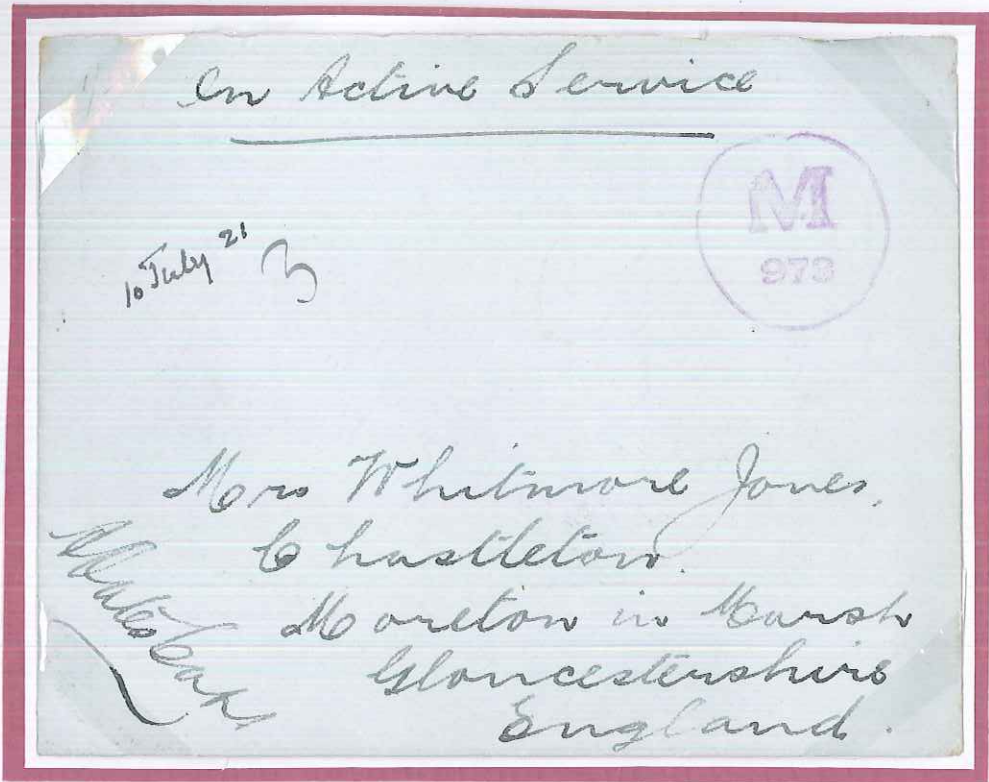 On Active Service
M
973
10 July 21
Mrs Whitmore Jones,
Chastleton.
Moreton in Marsh
Gloucestershire
England.